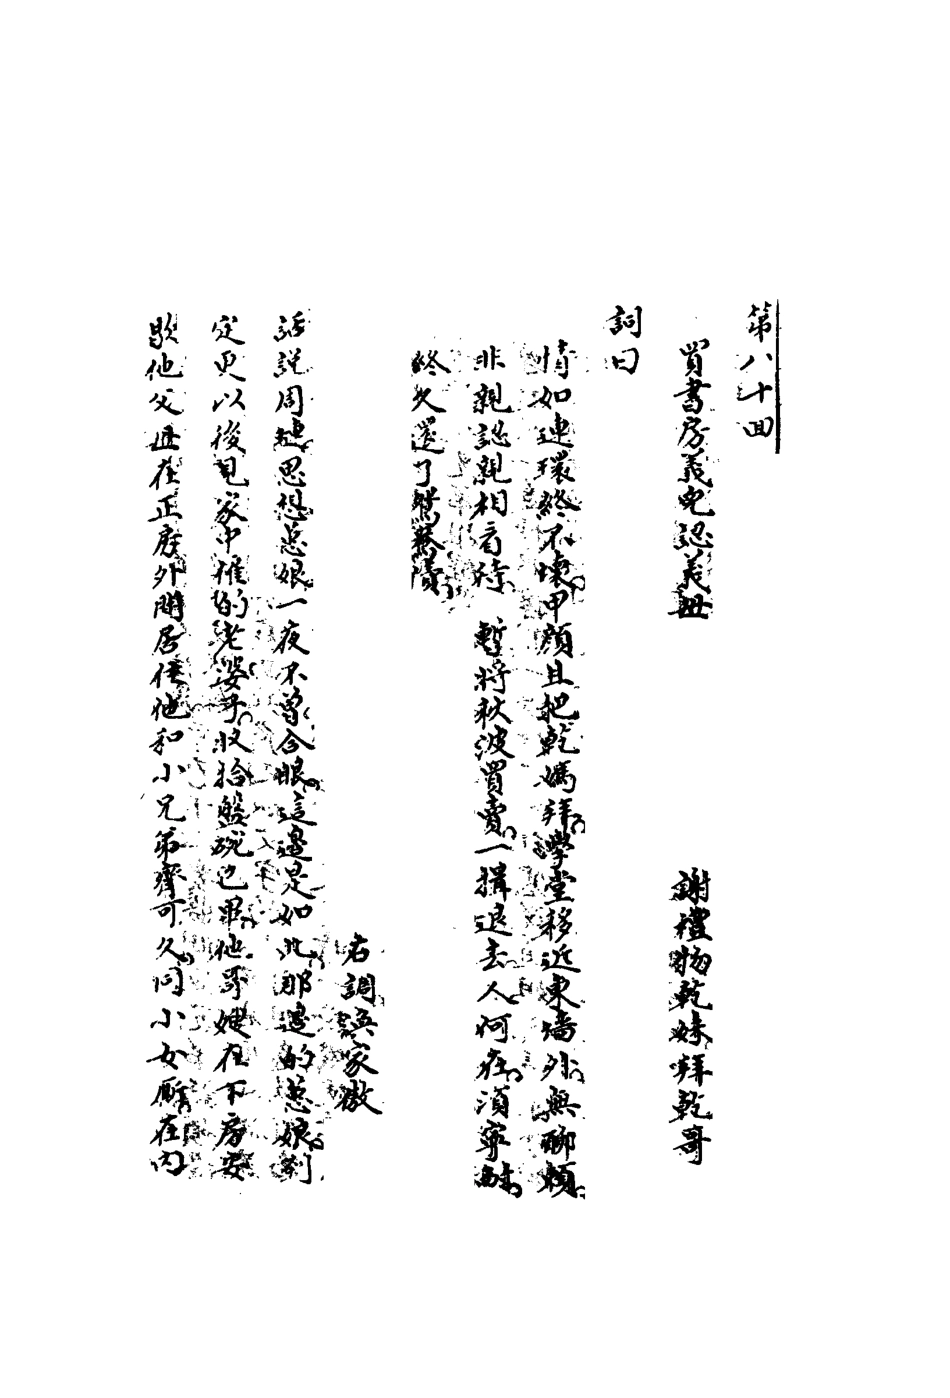 第八十回
買書房義兒認義母　謝禮物乾妹拜乾哥
詞曰
情如連環終不壞甲顏且把乾媽拜學堂移近東墻外無聊賴
非親認親相看待　暫將秋波買賣一揖退去人何在須寧耐
終久還了鴛鴦債
右調漁家傲
話說周璉思想蕙娘一夜不曾合眼這邊是如此那邊的蕙娘到
定更以後見家中雇的老婆子收拾盤碗已畢他哥嫂在下房安
歇他父母在正房外間居住他和小兄弟齊可久同小女厮在內